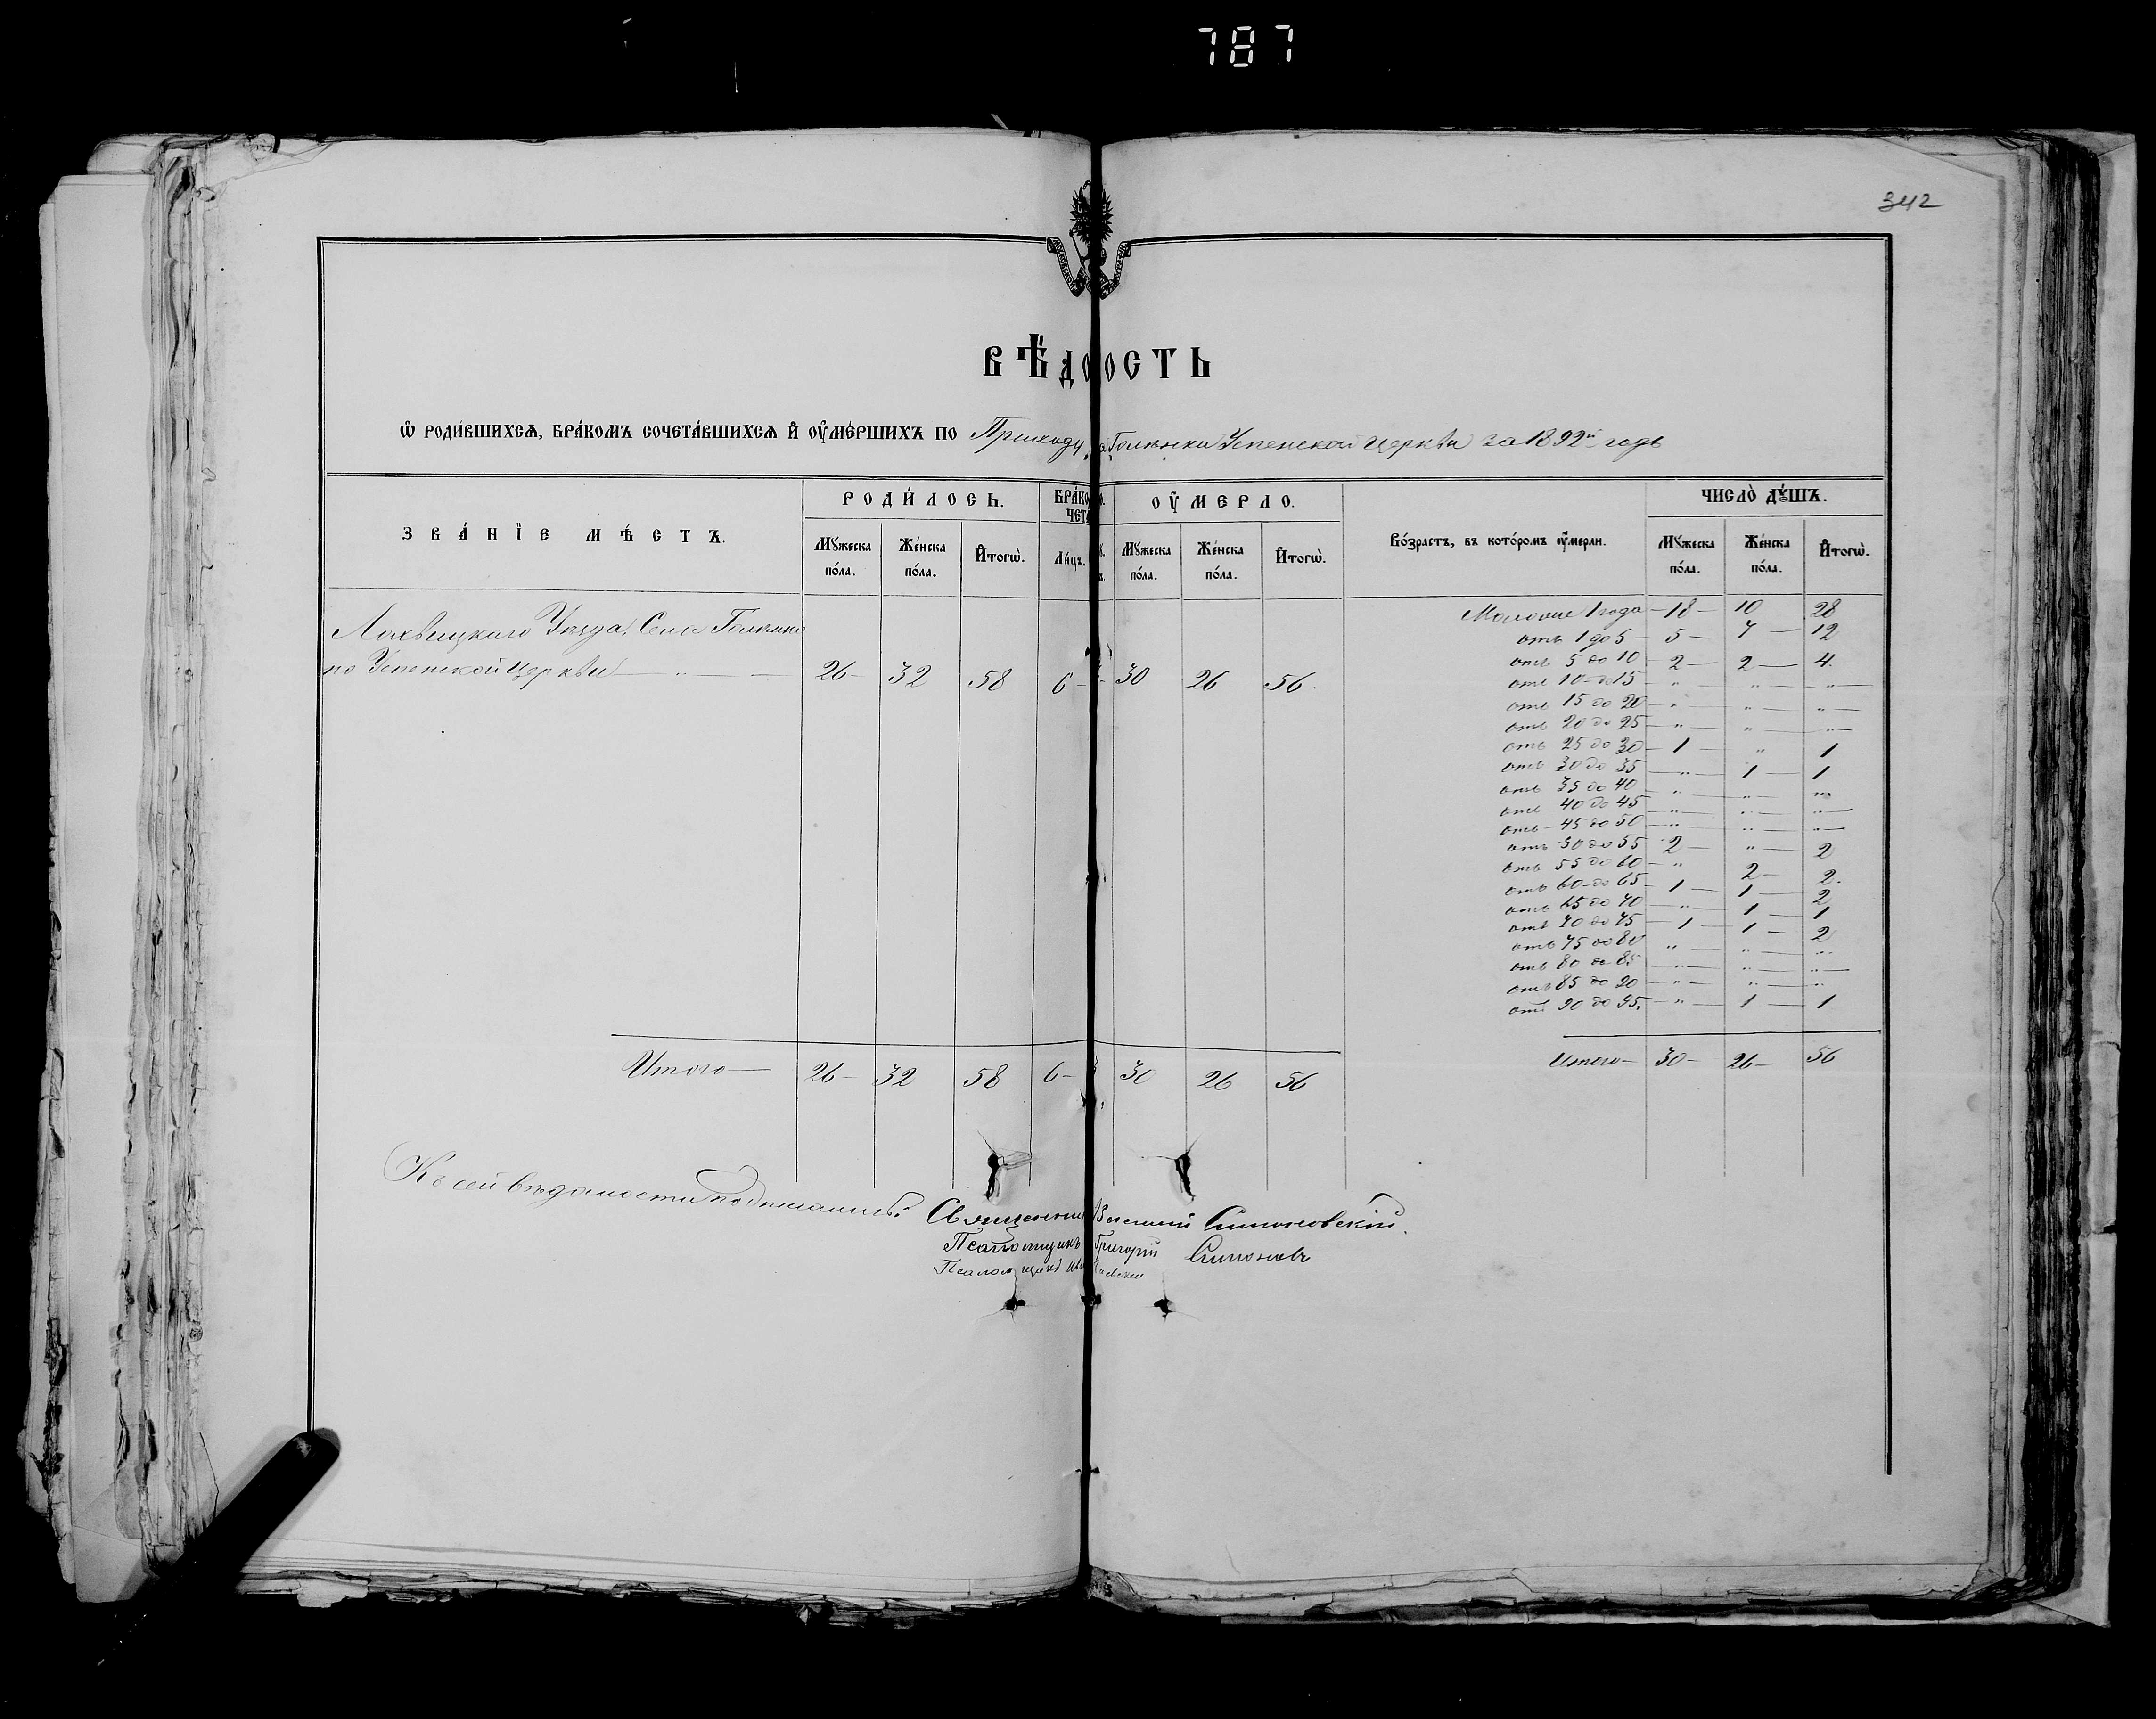 787
342
ВѢДО ОСТЬ
Ѡ РОДИ́ВШИХСѦ, БРА́КОМЪ СОЧЕТА́ВШИХСѦ И҆ ОУ҆МЕ́РШИХЪ ПО Приходу с. Голѣнки Успенской церкви за 1892й годъ
ЗВА́НЇЕ МѢ́СТЪ.
РОДИ́ЛОСЬ.
Мꙋ́жеска по́ла.
Же́нска по́ла.
И҆тогѡ̀.
БРА́КО О.
ЧЕТА
Ли́цъ.
ОУ҆МЕРЛО.
Мꙋ́жеска по́ла.
Же́нска по́ла.
И҆тогѡ̀.
Во́зрастъ, въ кото́ромъ оу҆́мерли.
ЧИСЛО̀ ДꙊ́ШЪ.
Мꙋ́жеска по́ла.
Же́нска по́ла.
И҆тогѡ̀.
Лохвицкаго Уѣзда, Села Голѣнки
по Успенской церкви — „ — 26 — 32 58 6 — 30 26 56.
Моложе 1 года — 18 — 10 28
отъ 1 до 5 — 5 — 7 — 12
отъ 5 до 10 — 2 — 2 — 4.
отъ 10 до 15 — „ — „ — „
отъ 15 до 20 — „ — „ — „
отъ 20 до 25 — „ — „ — „
отъ 25 до 30 — 1 — „ 1
отъ 30 до 35 — „ — 1 — 1
отъ 35 до 40 — „ — „ — „
отъ 40 до 45 — „ — „ — „
отъ 45 до 50 — „ — „ — „
отъ 50 до 55 2 — „ — 2
отъ 55 до 60 — „ 2 — 2.
отъ 60 до 65 — 1 — 1 — 2
отъ 65 до 70 — „ — 1 — 1
отъ 70 до 75 — 1 — 1 — 2
отъ 75 до 80 „ — „ — „
отъ 80 до 85 — „ — „ — „
отъ 85 до 90 — „ — „ — „
отъ 90 до 95. — „ — 1 — 1
Итого — 26 — 32 58 6 — 30 26 56
Итого — 30 — 26 — 56
Къ сей вѣдомости подписались: Священникъ Василий Симоновский.
Псаломщикъ Григорій Симоновъ
Псаломщикъ